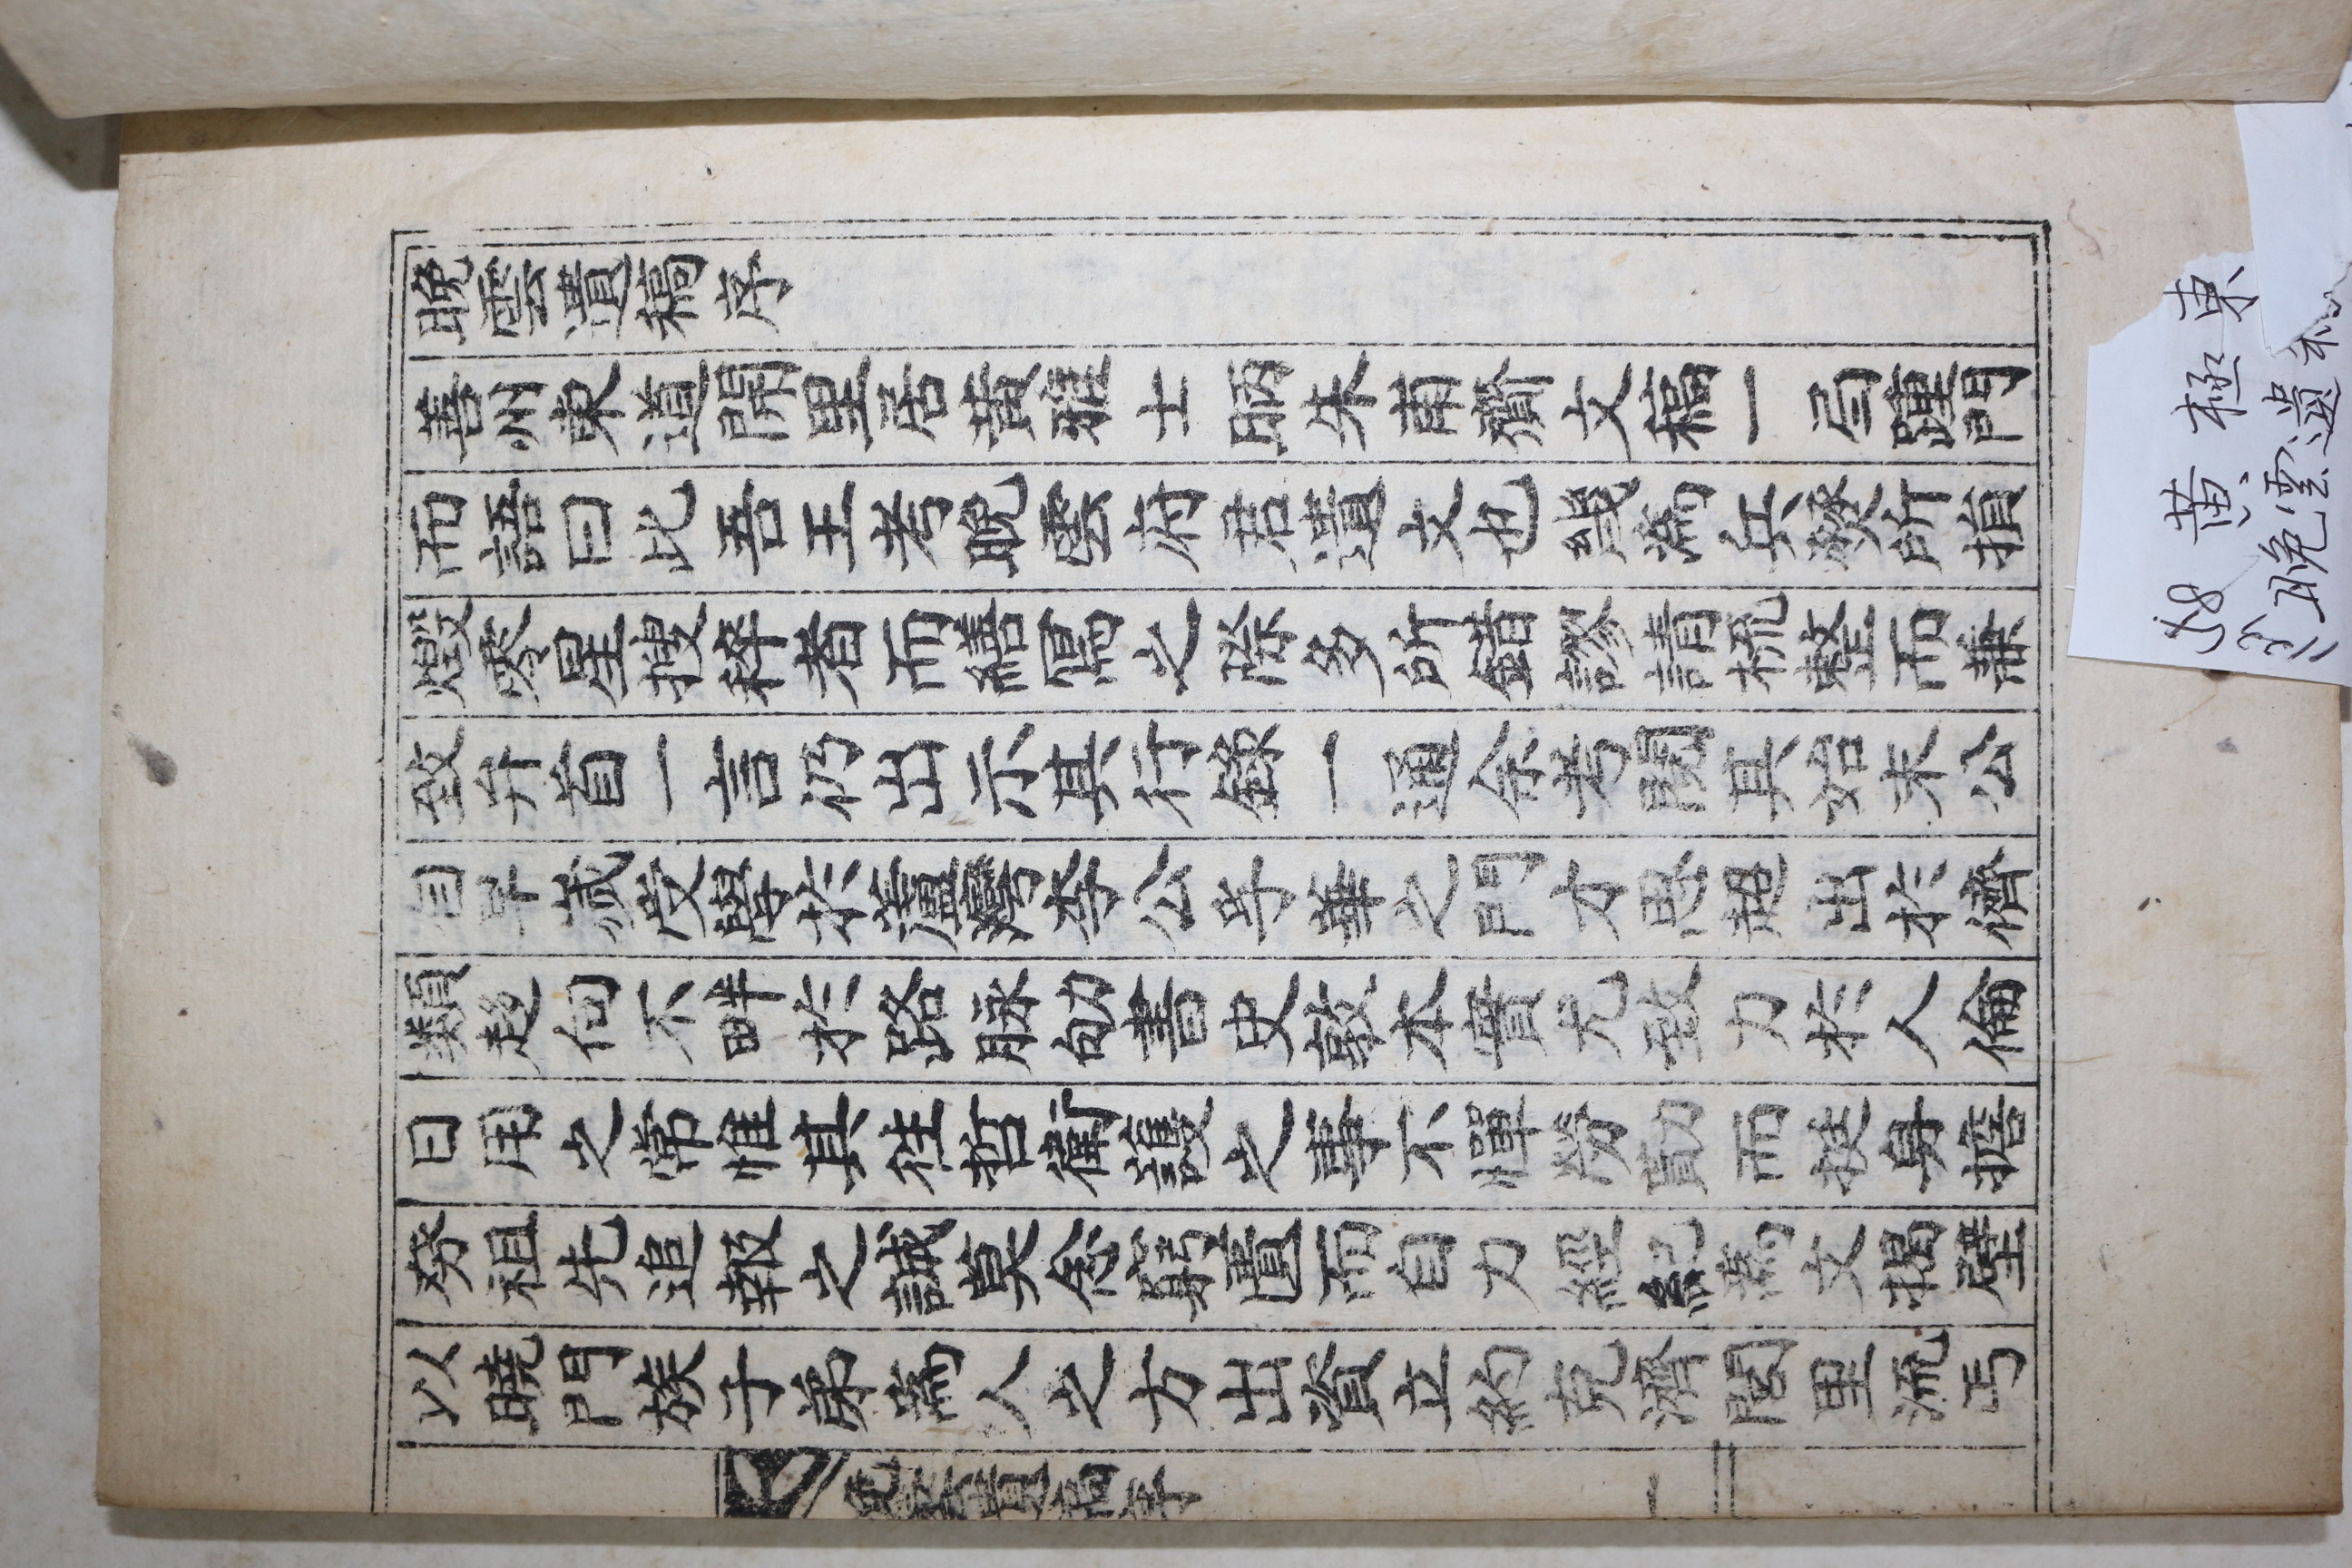 晩雲遺稿序
善州東道開里居黄雅士昞朱甫齎文稿一局踵門
而語曰此吾王考晩雲府君遺文也幾爲兵燹所損
燬零星搜稡者而繕冩之際多所錯謬請梳整而兼
致弁首一言仍出示其行錄一通余考閱其始末公
自早嵗受學於蘆灣李公孚華之門才思超出於儕
類趍向不畔於路脉劬書史敦本實尤致力於人倫
日用之常惟其徃哲衛護之事不憚勞勩而挺身擔
夯祖先追報之誠莫念窮匱而自力經紀爲文揭壁
以曉門族子弟爲人之方出資立約克濟閭里流丐
晩雲遺稿序
一
58 黄極東
晩雲遺稿